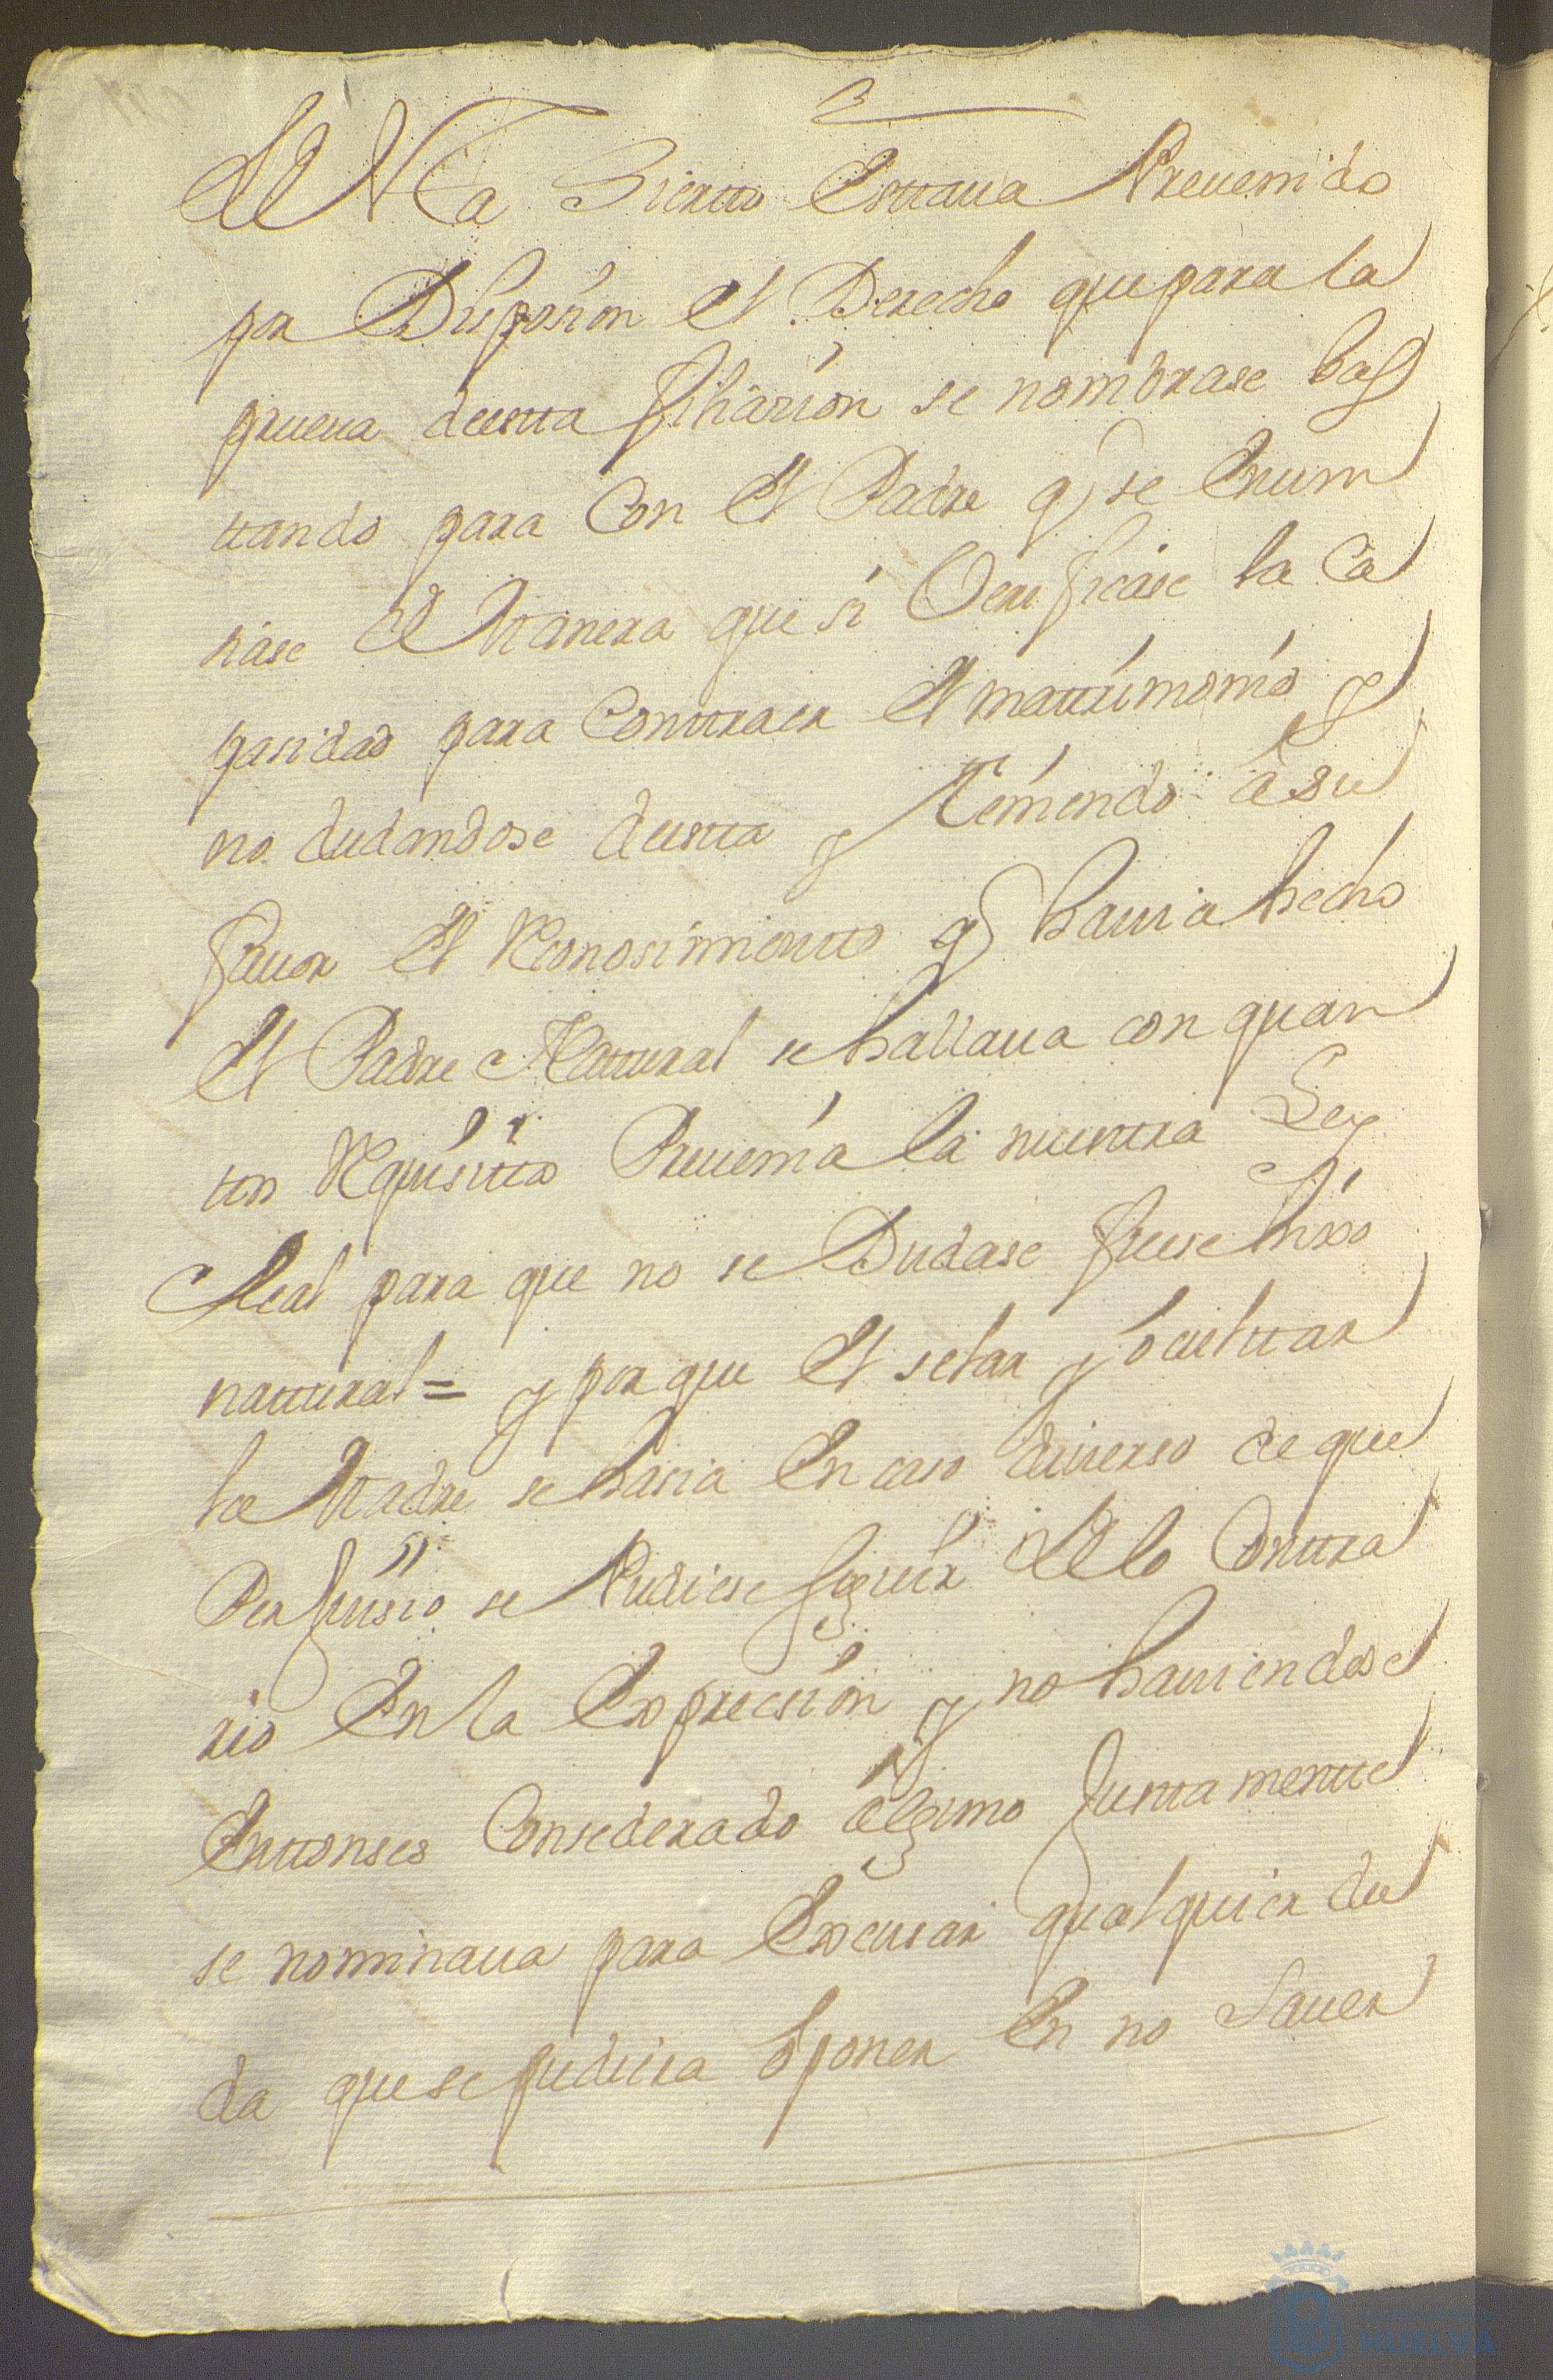 Cierto estaua Preuenido
por Disposision el Derecho que para la
prueua de esta filiasion se nombrase bas
tando para Con el Padre q se enun
siase de Manera que si Verificase la Ca
pasidad para Conttraer el mattrimonio y
no dudandose de esta y teniendo a su
fauor el Reconosimientto q hauia hecho
el Padre Nattural se hallaua con quan
tto Requisitto Preuenia la nuestra Ley
Real para que no se Dudase fuese hixo
nattural = y porque el selar y oculttar
la Madre se hasia en caso diuerso de que
Perjuisio se Pudiese seguir de lo Contra
rio en la expresion y no hauiendose
enttonses Considerado alguno Justamentte
se nominaua para excusar qualquier du
da que se pudiera oponer en no Sauer
HUELVA